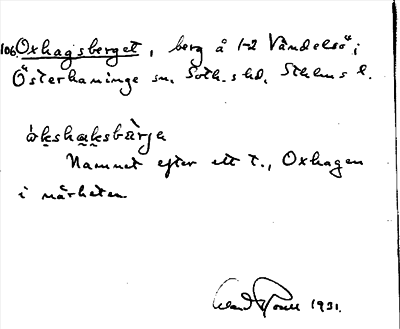 106. Oxhagsberget, berg å 1-2 Vändelsö,
Österhaninge sn. Soth. shd. Sthlms l.
ò̀kshaksbàrja
Namnet efter ett t., Oxhagen
i närheten
1931.